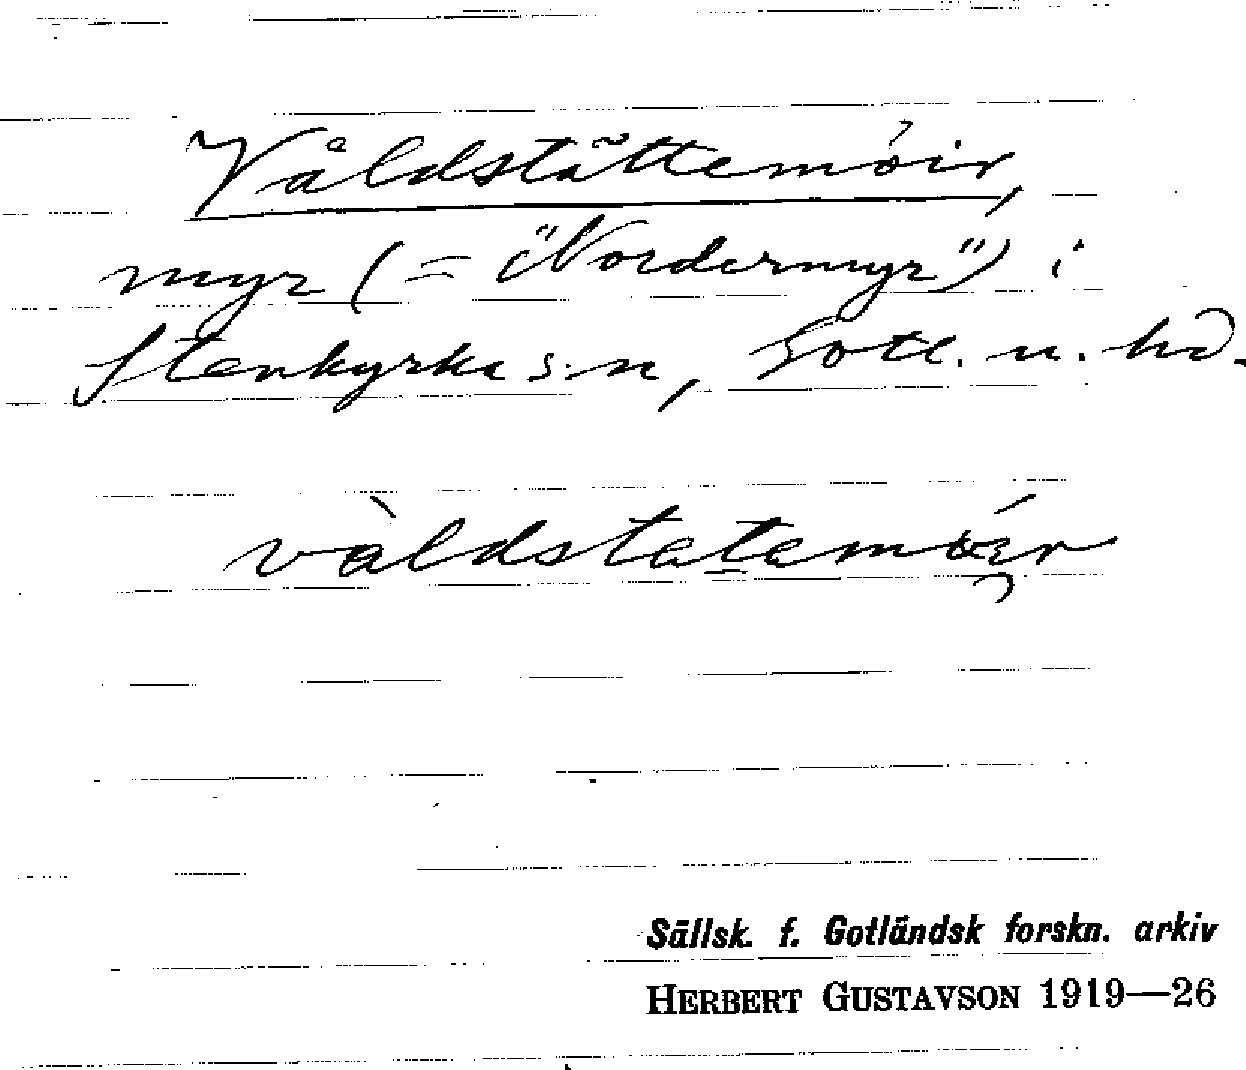 Våldstättemöir,
myr (= "Nordermyr") i
Stenkyrka s:n, Gotl. n. hd.
vàldstatemöér
Sällsk. f. Gotländsk forskn. arkiv
HERBERT GUSTAVSON 1919—26